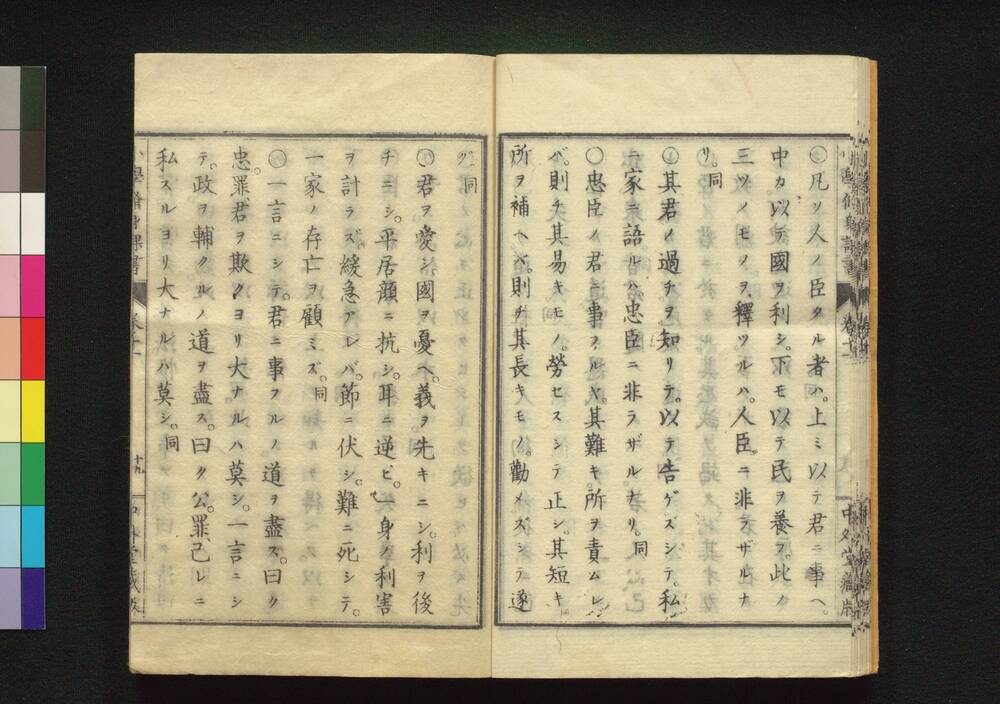 〇凡ソ人ノ臣タル者ハ。上ミ以テ君ニ事ヘ。
中カ以テ國ヲ利シ。下モ以テ民ヲ養フ。此ノ
三ツノモノヲ。釋ツルハ。人臣ニ非ラザルナ
リ。同
〇其君ノ過チヲ知リテ。以テ告ゲズシテ。私
ニ家ニ語ルハ。忠臣ニ非ラザルナリ。同
〇忠臣ノ君ニ事フルヤ。其難キ所ヲ責ムレ
バ。則チ其易キモノ。勞セスシテ正シ。其短キ
所ヲ補ヘバ。則チ其長キモノ。勸メズシテ遂
グ。同
〇君ヲ愛シ。國ヲ憂ヘ。義ヲ先キニシ。利ヲ後
チニシ。平居顔ニ抗シ。耳ニ逆ヒ。一身ノ利害
ヲ計ラズ。緩急アレバ。節ニ伏シ。難ニ死シテ。
一家ノ存亡ヲ顧ミズ。同
〇一言ニシテ。君ニ事フルノ道ヲ盡ス。曰ク
忠。罪。君ヲ欺クヨリ大ナルハ莫シ。一言ニシ
テ。政ヲ輔クルノ道ヲ盡ス。曰ク公。罪。己レニ
私スルヨリ大ナルハ莫シ。同
十九